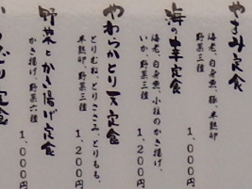 やまみ定食
海老、白身魚、豚、米麹卵
野菜三種
１,０００円
海の幸定食
海老、白身魚、小柱のかき揚げ、
いか、野菜三種
１,２００円
やわらかとり天定食
とりむね、とりささみ、とりもも、
米麹卵、野菜三種
１,２００円
野菜とかき揚げ定食
かき揚げ、野菜六種
１,０００円